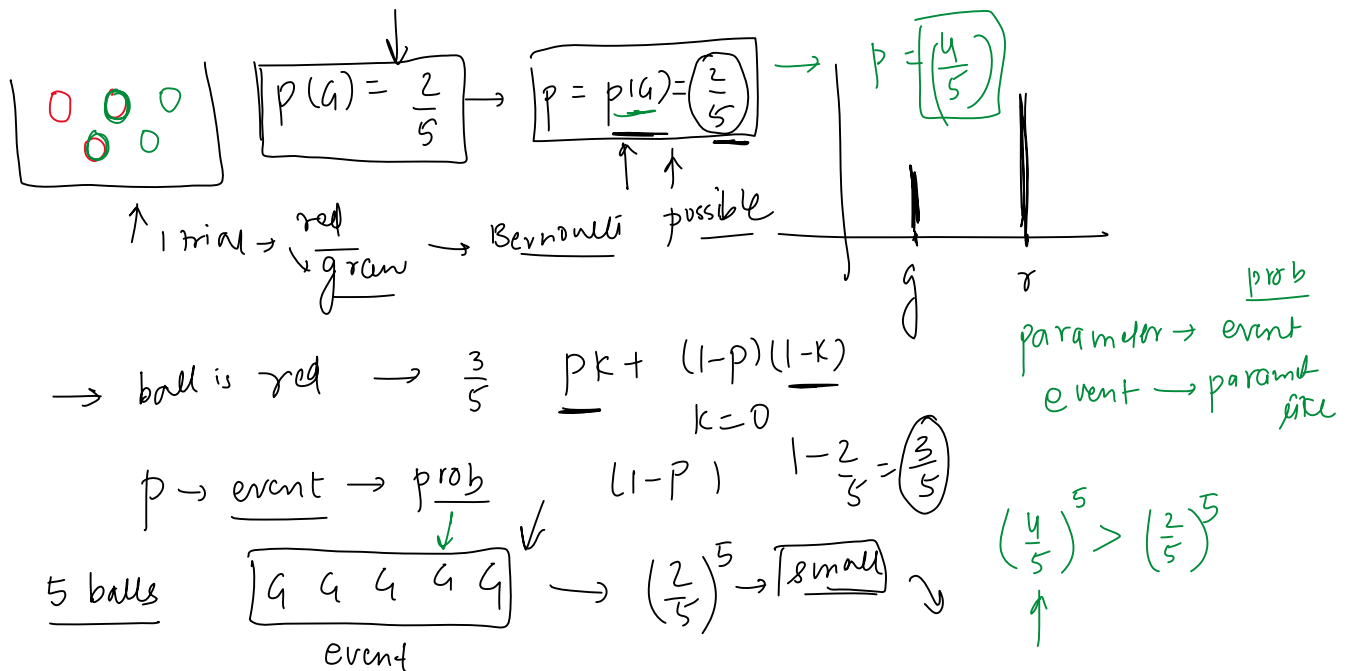 p(G) = 2/5 → p = p(G) = 2/5 → p = (4/5)
↑ 1 trial → red
↘ green → Bernoulli possible
g r
prob
parameter → event
event → paramet
→ ball is red → 3/5 pk + (1-p)(1-k)
k=0
p → event → prob (1-p) 1-2/5 = 3/5
5 balls G G G G G → (2/5)^5 → small ↘ (4/5)^5 > (2/5)^5
event